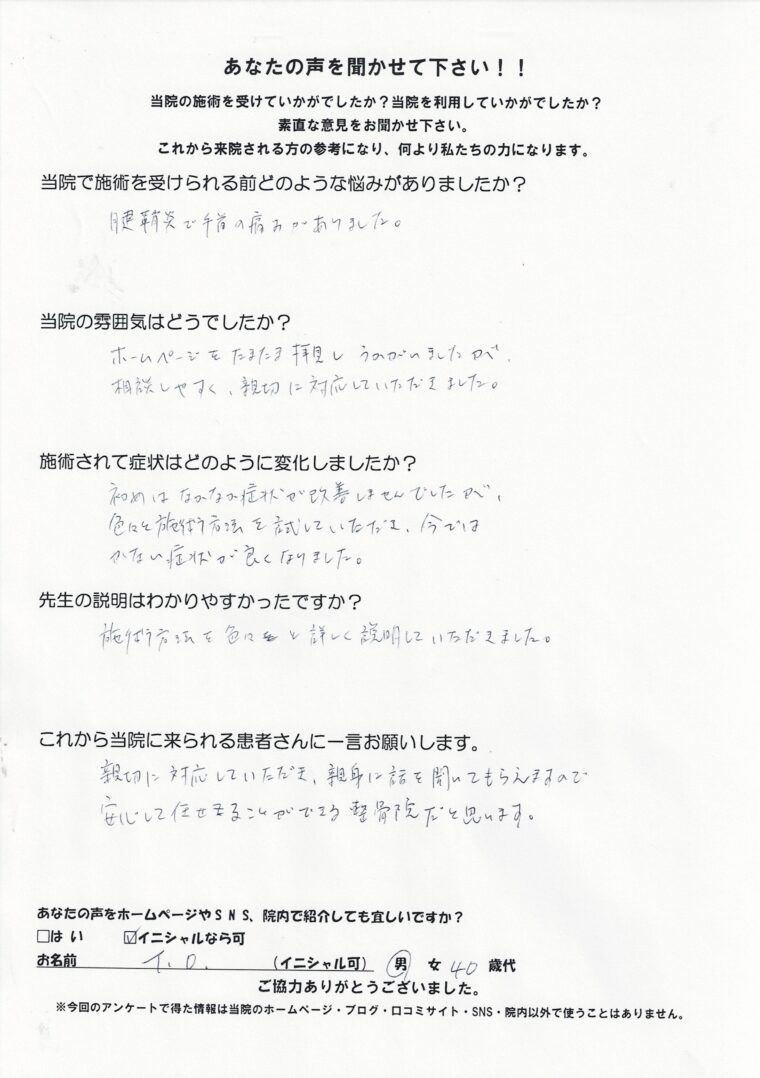 あなたの声を聞かせて下さい！！
当院の施術を受けていかがでしたか？当院を利用していかがでしたか？
素直な意見をお聞かせ下さい。
これから来院される方の参考になり、何より私たちの力になります。
当院で施術を受けられる前どのような悩みがありましたか？
腱鞘炎で手首の痛みがありました。
当院の雰囲気はどうでしたか？
ホームページをたまたま拝見しうかがいましたが、
相談しやすく、親切に対応していただきました。
施術されて症状はどのように変化しましたか？
初めはなかなか症状が改善しませんでしたが、
色々と施術方法を試していただき、今では
かなり症状が良くなりました。
先生の説明はわかりやすかったですか？
施術方法を色々と詳しく説明していただきました。
これから当院に来られる患者さんに一言お願いします。
親切に対応していただき、親身に話を聞いてもらえますので
安心して任せることができる整骨院だと思います。
あなたの声をホームページやＳＮＳ、院内で紹介しても宜しいですか？
□はい ☑イニシャルなら可
お名前 T.O. （イニシャル可） 男 女 40 歳代
ご協力ありがとうございました。
※今回のアンケートで得た情報は当院のホームページ・ブログ・口コミサイト・SNS・院内以外で使うことはありません。